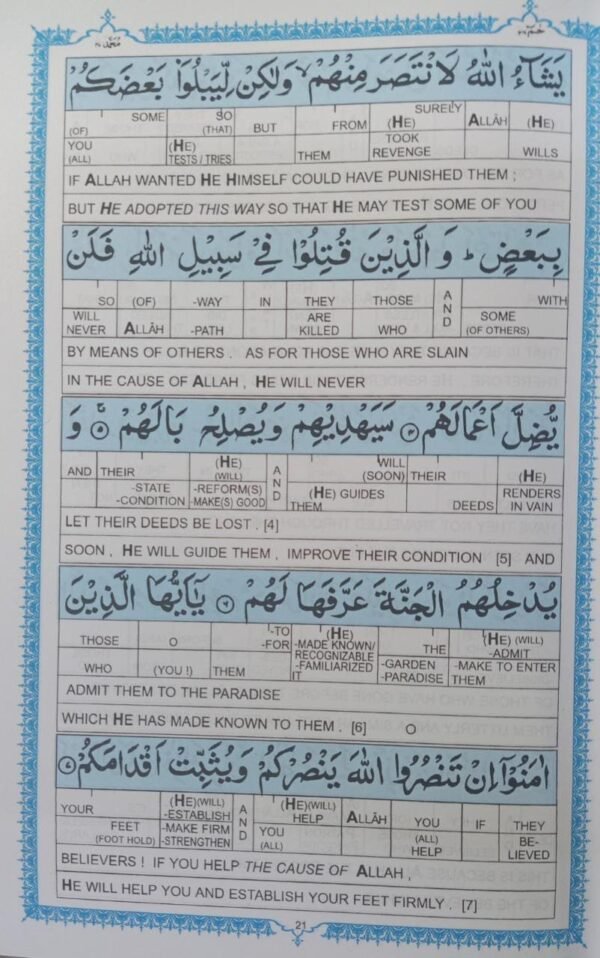 حٰمٓ مُحَمَّد
يَشَآءُ اللّٰهُ لَانْتَصَرَ مِنْهُمْ وَلٰكِنْ لِّيَبْلُوَا۟ بَعْضَكُمْ
(OF) SOME SO (THAT) BUT FROM SURELY (HE) ALLÂH (HE)
YOU (ALL) (HE) TESTS / TRIES THEM TOOK REVENGE WILLS
IF ALLAH WANTED HE HIMSELF COULD HAVE PUNISHED THEM ;
BUT HE ADOPTED THIS WAY SO THAT HE MAY TEST SOME OF YOU
بِبَعْضٍ ؕ وَ الَّذِيْنَ قُتِلُوْا فِيْ سَبِيْلِ اللّٰهِ فَلَنْ
SO (OF) -WAY IN THEY THOSE AND WITH
WILL NEVER ALLÂH -PATH ARE KILLED WHO SOME (OF OTHERS)
BY MEANS OF OTHERS . AS FOR THOSE WHO ARE SLAIN
IN THE CAUSE OF ALLAH , HE WILL NEVER
يُّضِلَّ اَعْمَالَهُمْ ۝٤ سَيَهْدِيْهِمْ وَيُصْلِحُ بَالَهُمْ ۝٥ وَ
AND THEIR (HE) (WILL) AND WILL (SOON) THEIR (HE)
-STATE -CONDITION -REFORM(S) -MAKE(S) GOOD (HE) GUIDES THEM DEEDS RENDERS IN VAIN
LET THEIR DEEDS BE LOST . [4]
SOON , HE WILL GUIDE THEM , IMPROVE THEIR CONDITION [5] AND
يُدْخِلُهُمُ الْجَنَّةَ عَرَّفَهَا لَهُمْ ۝٦ يٰۤاَيُّهَا الَّذِيْنَ
THOSE O -TO -FOR (HE) -MADE KNOWN/ RECOGNIZABLE THE (HE) (WILL) -ADMIT
WHO (YOU !) THEM -FAMILIARIZED IT -GARDEN -PARADISE -MAKE TO ENTER THEM
ADMIT THEM TO THE PARADISE
WHICH HE HAS MADE KNOWN TO THEM . [6] O
اٰمَنُوْۤا اِنْ تَنْصُرُوا اللّٰهَ يَنْصُرْكُمْ وَيُثَبِّتْ اَقْدَامَكُمْ ۝٧
YOUR (HE)(WILL) -ESTABLISH AND (HE)(WILL) HELP ALLÂH YOU IF THEY
FEET (FOOT HOLD) -MAKE FIRM -STRENGTHEN YOU (ALL) (ALL) HELP BE- LIEVED
BELIEVERS ! IF YOU HELP THE CAUSE OF ALLAH ,
HE WILL HELP YOU AND ESTABLISH YOUR FEET FIRMLY . [7]
21